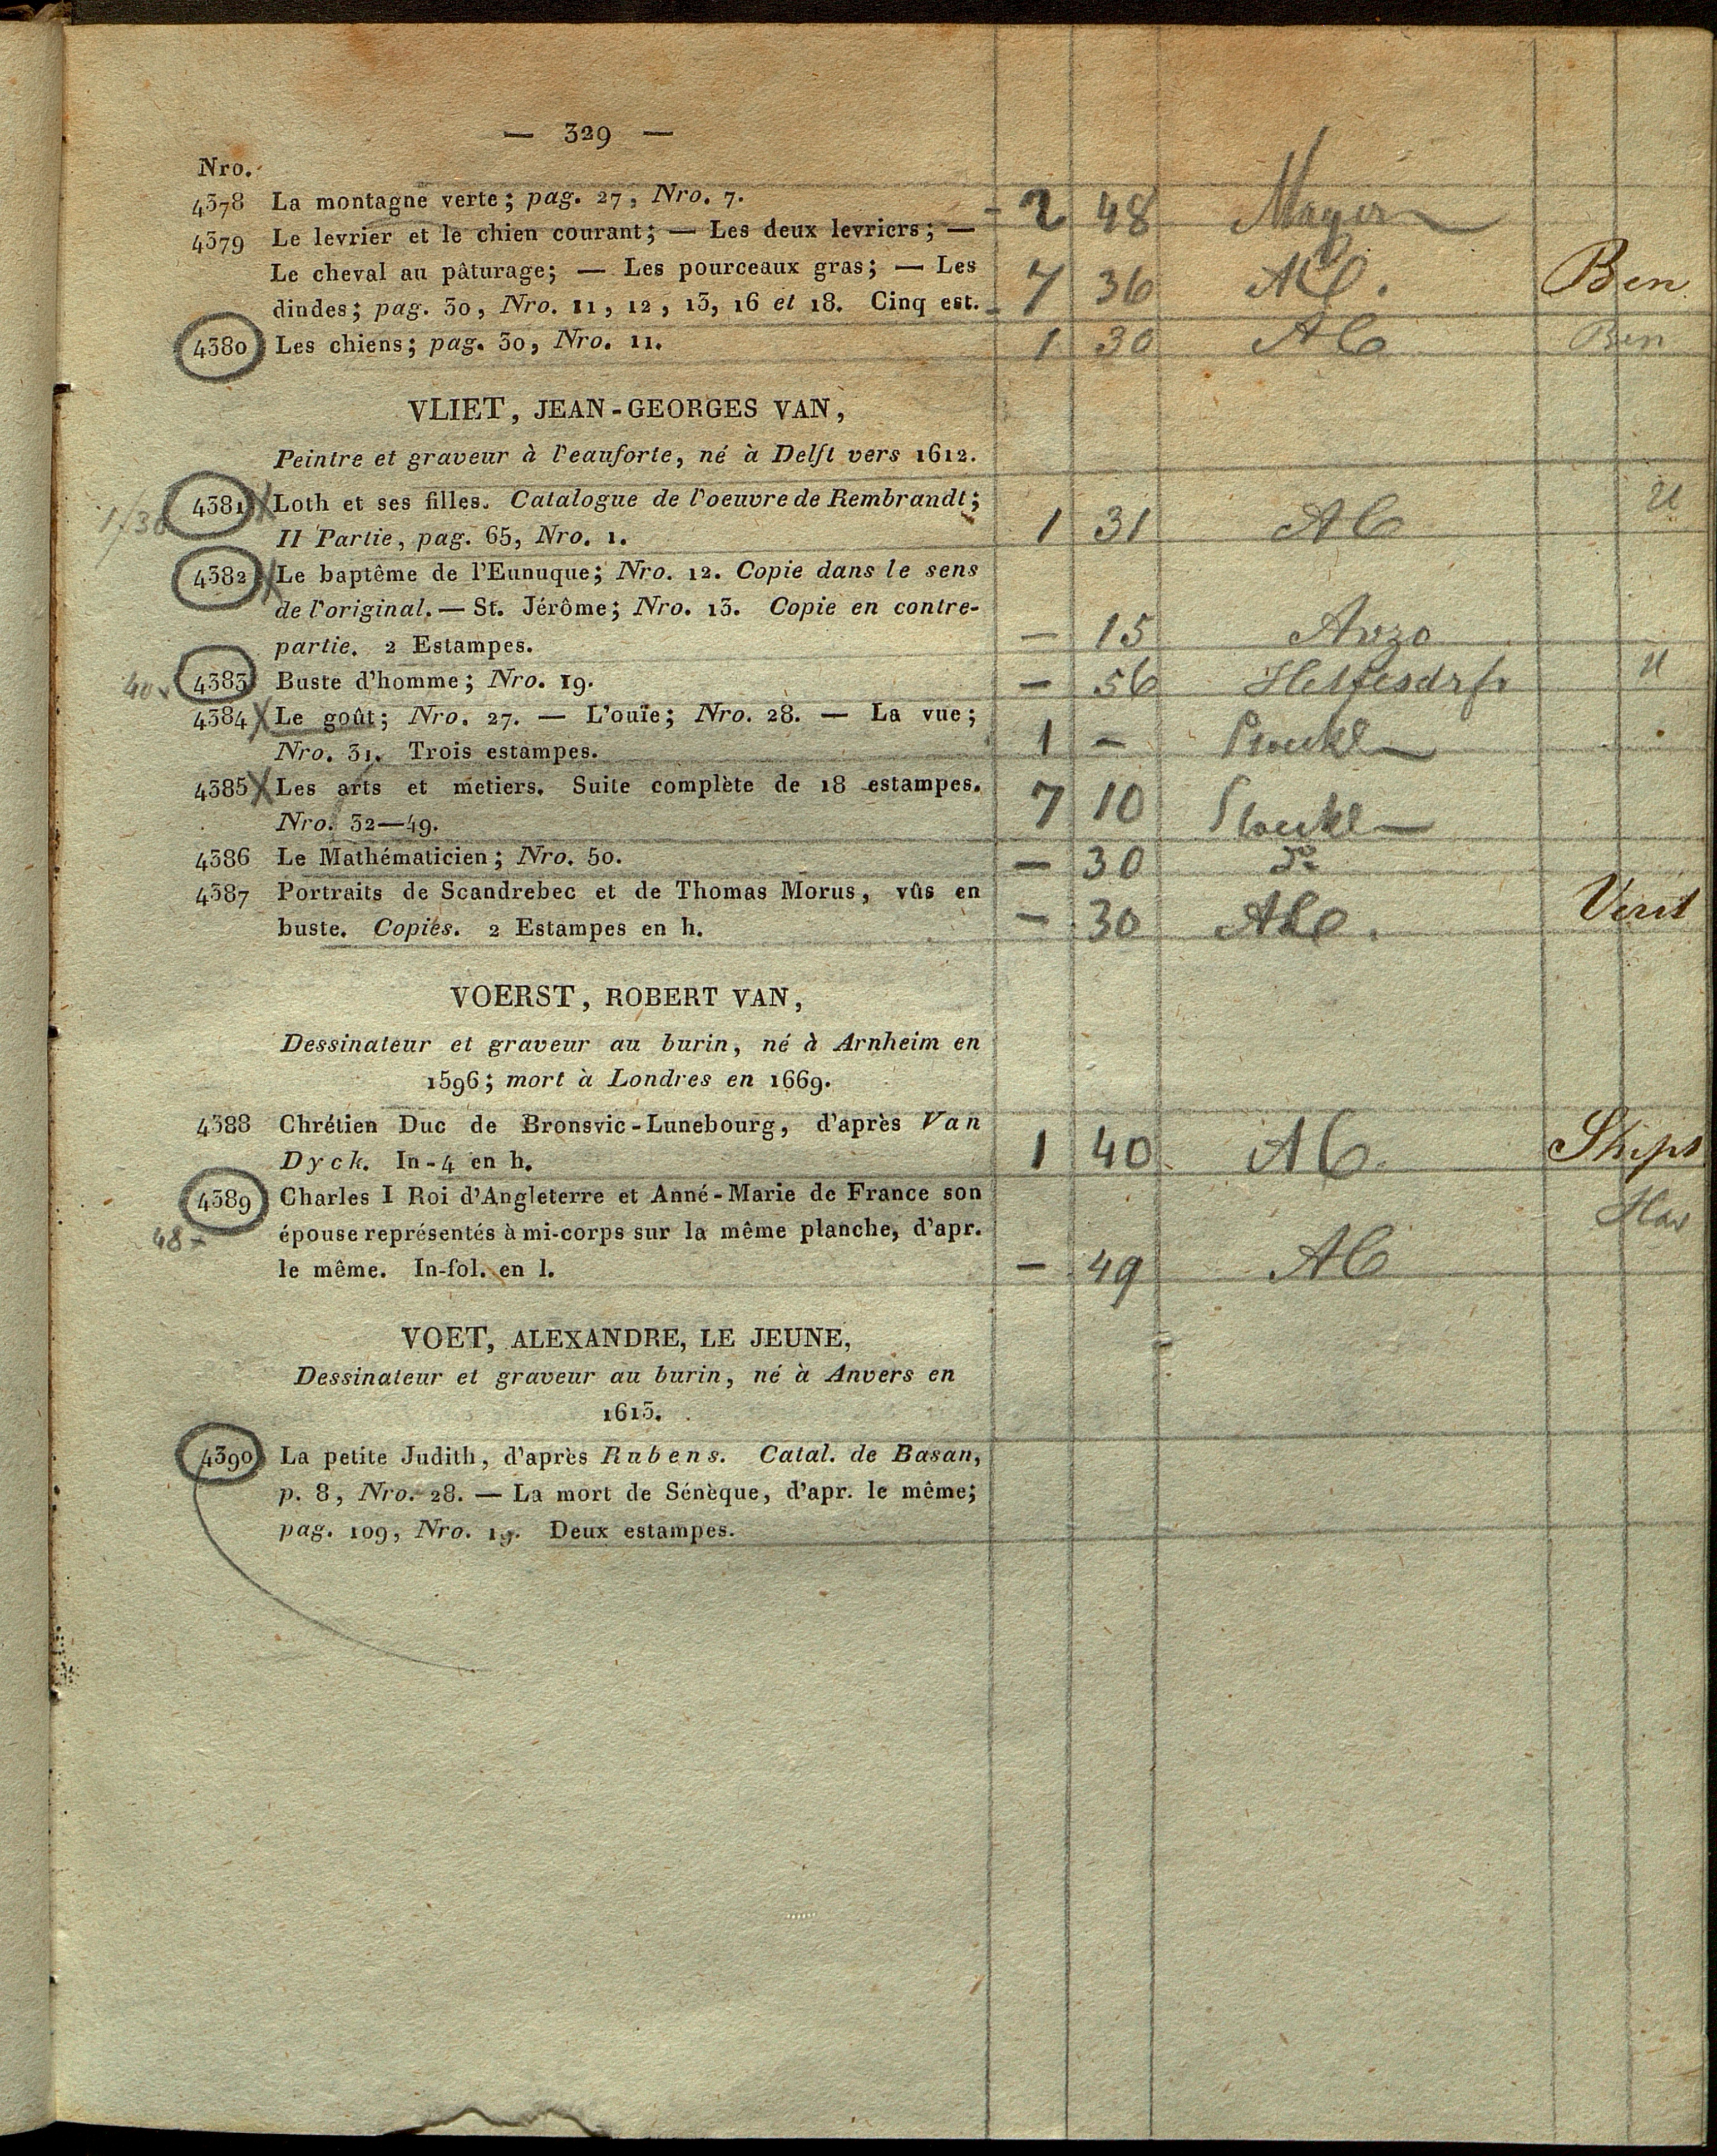 — 329 —
Nro.
4378 La montagne verte; pag. 27, Nro. 7. - 2 48 Mayer
4379 Le levrier et le chien courant; — Les deux levriers; —
Le cheval au pâturage; — Les pourceaux gras; — Les
dindes; pag. 30, Nro. 11, 12, 13, 16 et 18. Cinq est. - 7 36 AC. Ben
4380 Les chiens; pag. 30, Nro. 11. 1 30 AC Ben
VLIET, JEAN-GEORGES VAN,
Peintre et graveur à l'eauforte, né à Delft vers 1612.
4381 Loth et ses filles. Catalogue de l'oeuvre de Rembrandt;
1/30 II Partie, pag. 65, Nro. 1. 1 31 AC
4382 Le baptême de l'Eunuque; Nro. 12. Copie dans le sens
de l'original. — St. Jérôme; Nro. 13. Copie en contre-
partie. 2 Estampes. — 15 Arzo
40 4383 Buste d'homme; Nro. 19. — 56
4384 Le goût; Nro. 27. — L'ouïe; Nro. 28. — La vue;
Nro. 31. Trois estampes. 1 —
4385 Les arts et metiers. Suite complète de 18 estampes.
Nro. 32—49. 7 10
4386 Le Mathématicien; Nro. 50. — 30
4387 Portraits de Scandrebec et de Thomas Morus, vûs en
buste. Copies. 2 Estampes en h. — 30 AC.
VOERST, ROBERT VAN,
Dessinateur et graveur au burin, né à Arnheim en
1596; mort à Londres en 1669.
4388 Chrétien Duc de Bronsvic-Lunebourg, d'après Van
Dyck. In-4 en h. 1 40 AC.
4389 Charles I Roi d'Angleterre et Anné-Marie de France son
48 — épouse représentés à mi-corps sur la même planche, d'apr.
le même. In-fol. en l. — 49 AC
VOET, ALEXANDRE, LE JEUNE,
Dessinateur et graveur au burin, né à Anvers en
1613.
4390 La petite Judith, d'après Rubens. Catal. de Basan,
p. 8, Nro. 28. — La mort de Sénèque, d'apr. le même;
pag. 109, Nro. 19. Deux estampes.